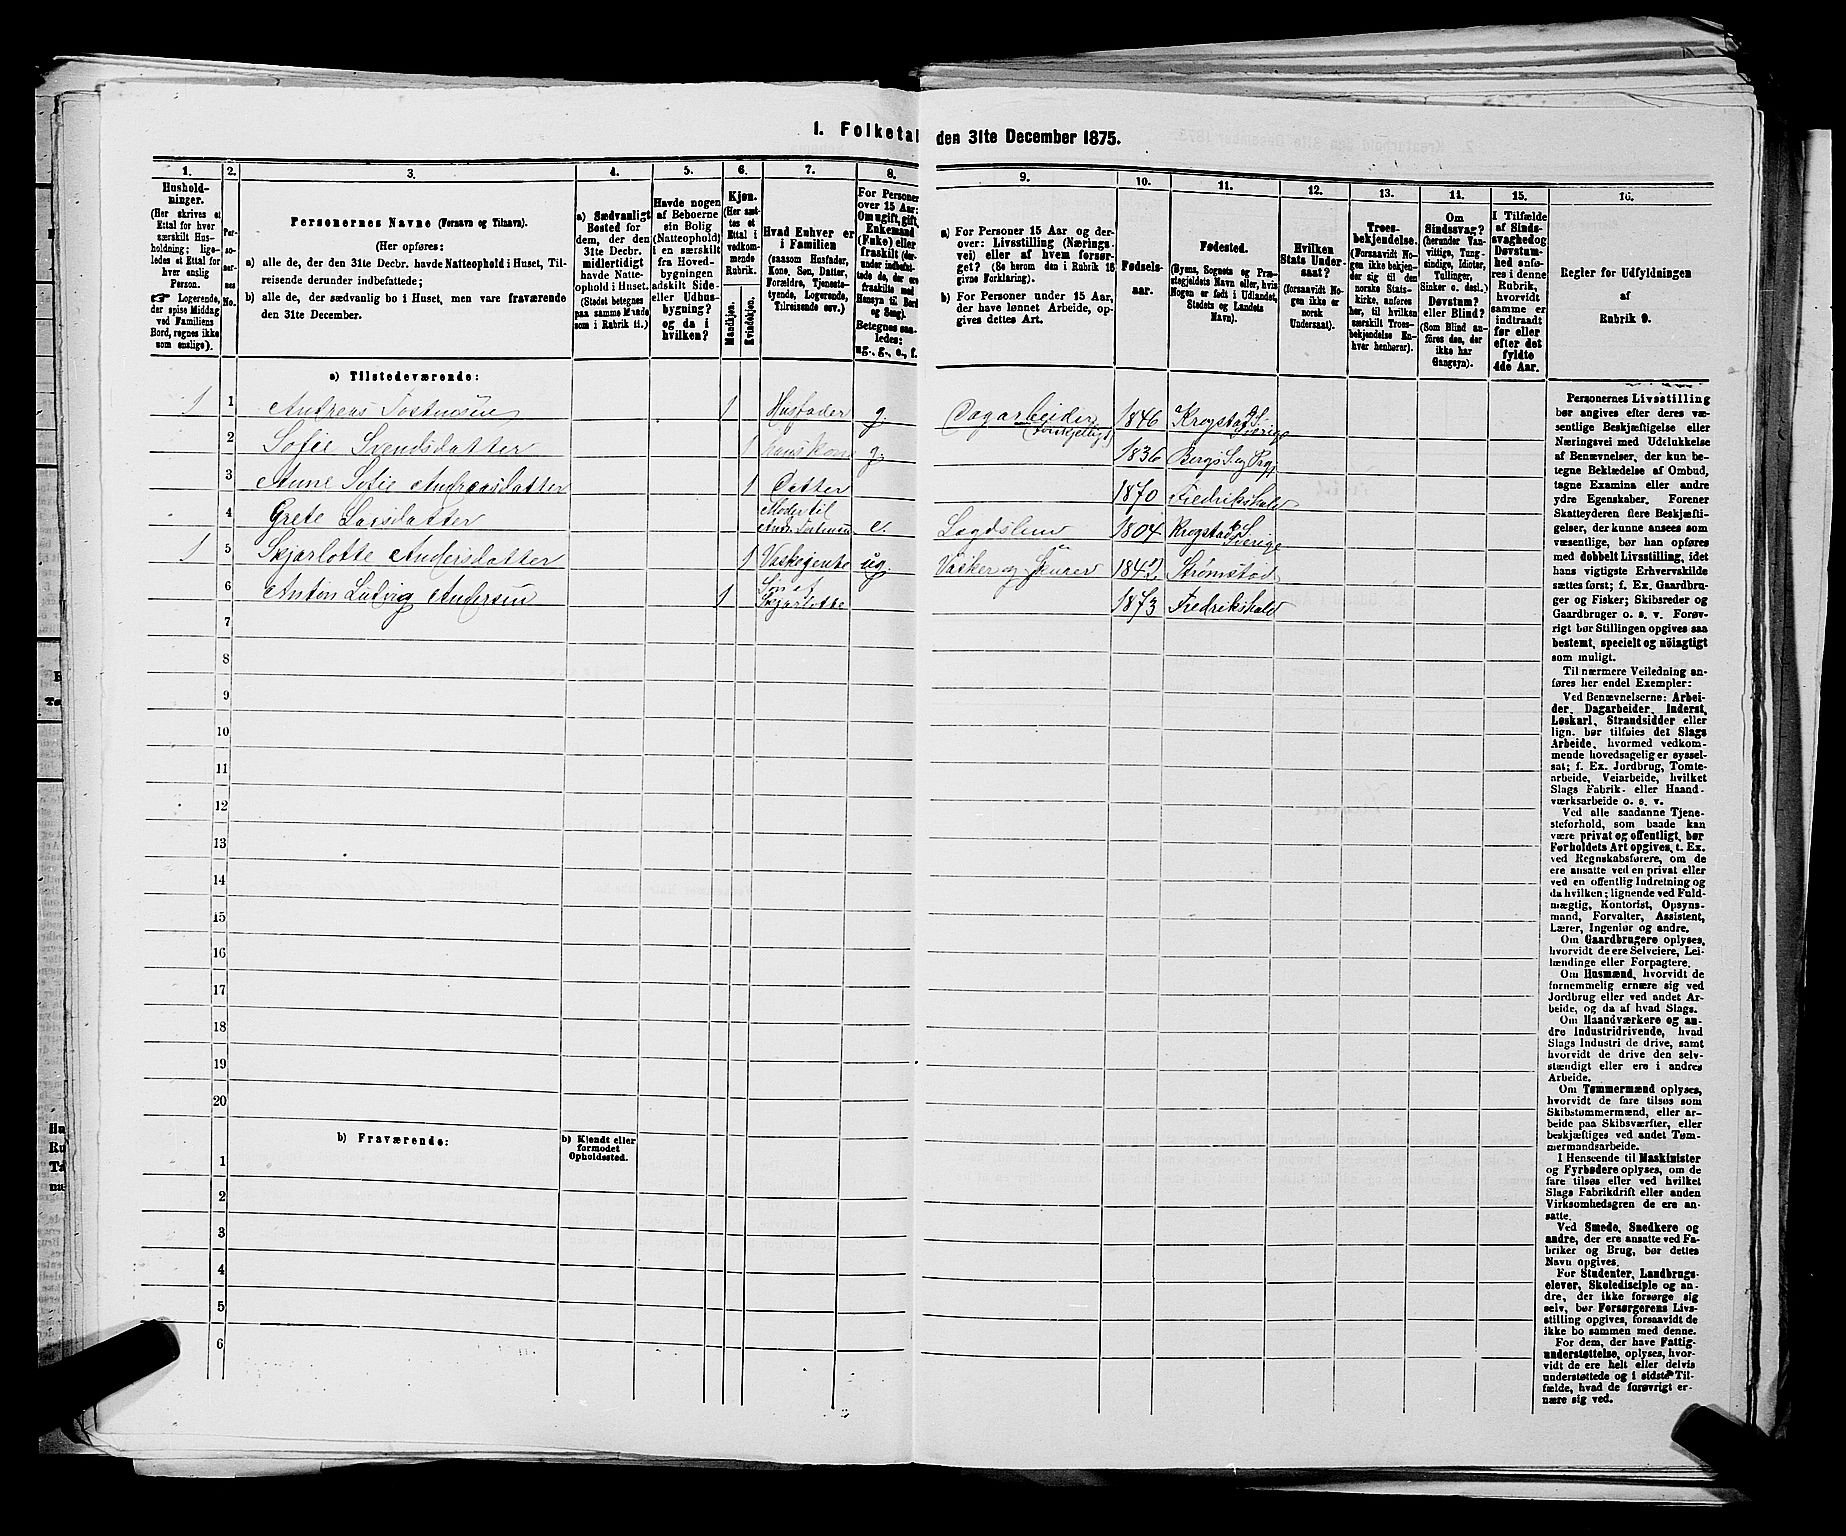 I. Folketal den 31te December 1875.
1.
Hushold-
ninger.
(Her skrives et
Ettal for hver
særskilt Hus-
holdning; lige-
ledes et Ettal for
hver enslig
Person.
☞ Logerende,
der spise Middag
ved Familiens
Bord, regnes ikke
som enslige).
2.
Per-
so-
ner-
nes
No.
3.
Personernes Navne (Fornavn og Tilnavn).
(Her opføres:
a) alle de, der den 31te Decbr. havde Natteophold i Huset, Til-
reisende derunder indbefattede;
b) alle de, der sædvanlig bo i Huset, men vare fraværende
den 31te December.
4.
a) Sædvanligt
Bosted for
dem, der den
31te Decbr.
midlertidigt
havde Natte-
ophold i Huset.
(Stedet betegnes
paa samme Maade
som i Rubrik 11.)
5.
Havde nogen
af Beboerne
sin Bolig
(Natteophold)
i en særskilt
fra Hoved-
bygningen
adskilt Side-
eller Udhus-
bygning?
og da i
hvilken?
6.
Kjøn.
(Her sæt-
tes et
Ettal i
vedkom-
mende
Rubrik.
Mandkjøn.
Kvindekjøn.
7.
Hvad Enhver er
i Familien
(saasom Husfader,
Kone, Søn, Datter,
Forældre, Tjeneste-
tyende, Logerende,
Tilreisende osv.)
8.
For Personer
over 15 Aar:
Om ugift, gift,
Enkemand
(Enke) eller
fraskilt (der-
under indbefat-
tede de, der ere
fraskilte med
Hensyn til Bord
og Seng).
Betegnes saa-
ledes:
ug., g., e., f.
9.
a) For Personer 15 Aar og der-
over: Livsstilling (Nærings-
vei) eller af hvem forsør-
get? (Se herom den i Rubrik 16
givne Forklaring).
b) For Personer under 15 Aar,
der have lønnet Arbeide, op-
gives dettes Art.
10.
Fødsels-
aar.
11.
Fødested.
(Byens, Sognets og Præ-
stegjeldets Navn eller, hvis
Nogen er født i Udlandet,
Stedets og Landets
Navn).
12.
Hvilken
Stats Under-
saat?
(forsaavidt No-
gen ikke er
norsk
Undersaat).
13.
Troes-
bekjendelse.
(Forsaavidt No-
gen ikke bekjen-
der sig til den
norske Stats-
kirke, anføres
her, til hvilken
særskilt Troes-
bekjendelse En-
hver henhører).
14.
Om
Sindssvag?
(herunder Van-
vittige, Tung-
sindige, Idioter,
Tullinger,
Sinker o. desl.)
Døvstum?
eller Blind?
(Som Blind an-
føres den, der
ikke har
Gangsyn).
15.
I Tilfælde
af Sinds-
svaghed og
Døvstum-
hed anfø-
res i denne
Rubrik,
hvorvidt
samme er
indtraadt
før eller
efter det
fyldte
4de Aar.
16.
Regler for Udfyldningen
af
Rubrik 9.
a) Tilstedeværende:
1 1 Andreas Tostensen 1 Husfader g. Dagarbeider 1846 Krogstad S. Sverige
2 Sofie Svendsdatter 1 hans Kone g. 1836 Bergs S. og Prgj.
3 Anne Sofie Andreasdatter 1 Datter 1870 Fredrikshald
4 Grete Larsdatter Moder til Andr. Tostensen e. Lægdslem 1804 Krogstad S. Sverige
1 5 Skjarlotte Andersdatter 1 Vaskejente ug. Vasker og Skurer Strømstad
6 Anton Ludvig Andersen 1 Søn af Skjarlotte 1873 Fredrikshald
7
8
9
10
11
12
13
14
15
16
17
18
19
20
b) Fraværende:
b) Kjendt eller
formodet
Opholdssted.
1
2
3
4
5
6
Personernes Livsstilling
bør angives efter deres væ-
sentlige Beskjæftigelse eller
Næringsvei med Udelukkelse
af Benævnelser, der kun be-
tegne Beklædelse af Ombud,
tagne Examina eller andre
ydre Egenskaber. Forener
Skatteyderen flere Beskjæfti-
gelser, der kunne ansees som
væsentlige, bør han opføres
med dobbelt Livsstilling, idet
hans vigtigste Erhvervskilde
sættes først; f. Ex. Gaardbru-
ger og Fisker; Skibsreder og
Gaardbruger o. s. v. Forøv-
rigt bør Stillingen opgives saa
bestemt, specielt og nöiagtigt
som muligt.
Til nærmere Veiledning an-
føres her endel Exempler:
Ved Benævnelserne: Arbei-
der, Dagarbeider, Inderst,
Løskarl, Strandsidder eller
lign. bør tilføies det Slags
Arbeide, hvormed vedkom-
mende hovedsagelig er syssel-
sat; f. Ex. Jordbrug, Tomte-
arbeide, Veiarbeide, hvilket
Slags Fabrik- eller Haand-
værksarbeide o. s. v.
Ved alle saadanne Tjene-
steforhold, som baade kan
være privat og offentligt, bør
Forholdets Art opgives, t. Ex.
ved Regnskabsførere, om de
ere ansatte ved en privat eller
ved en offentlig Indretning og
da hvilken; lignende ved Fuld-
mægtig, Kontorist, Opsyns-
mand, Forvalter, Assistent,
Lærer, Ingeniør og andre.
Om Gaardbrugere oplyses,
hvorvidt de ere Selveiere, Lei-
lændinge eller Forpagtere.
Om Husmænd, hvorvidt de
fornemmelig ernære sig ved
Jordbrug eller ved andet Ar-
beide, og da af hvad Slags.
Om Haandværkere og an-
dre Industridrivende, hvad
Slags Industri de drive, samt
hvorvidt de drive den selv-
stændigt eller ere i andres
Arbeide.
Om Tømmermænd oplyses,
hvorvidt de fare tilsøs som
Skibstømmermænd, eller ar-
beide paa Skibsværfter, eller
beskjæftiges ved andet Tøm-
mermandsarbeide.
I Henseende til Maskinister
og Fyrbødere oplyses, om de
fare tilsøs eller ved hvilket
Slags Fabrikdrift eller anden
Virksomhedsgren de ere an-
satte.
Ved Smede, Snedkere og
andre, der ere ansatte ved Fa-
briker og Brug, bør dettes
Navn opgives.
For Studenter, Landbrugs-
elever, Skoledisciple og an-
dre, der ikke forsørge sig
selv, bør Forsørgerens Livs-
stilling opgives, forsaavidt de
ikke bo sammen med denne.
For dem, der have Fattig-
understøttelse, oplyses, hvor-
vidt de ere helt eller delvis
understøttede og i sidste Til-
fælde, hvad de forøvrigt er-
nære sig ved.